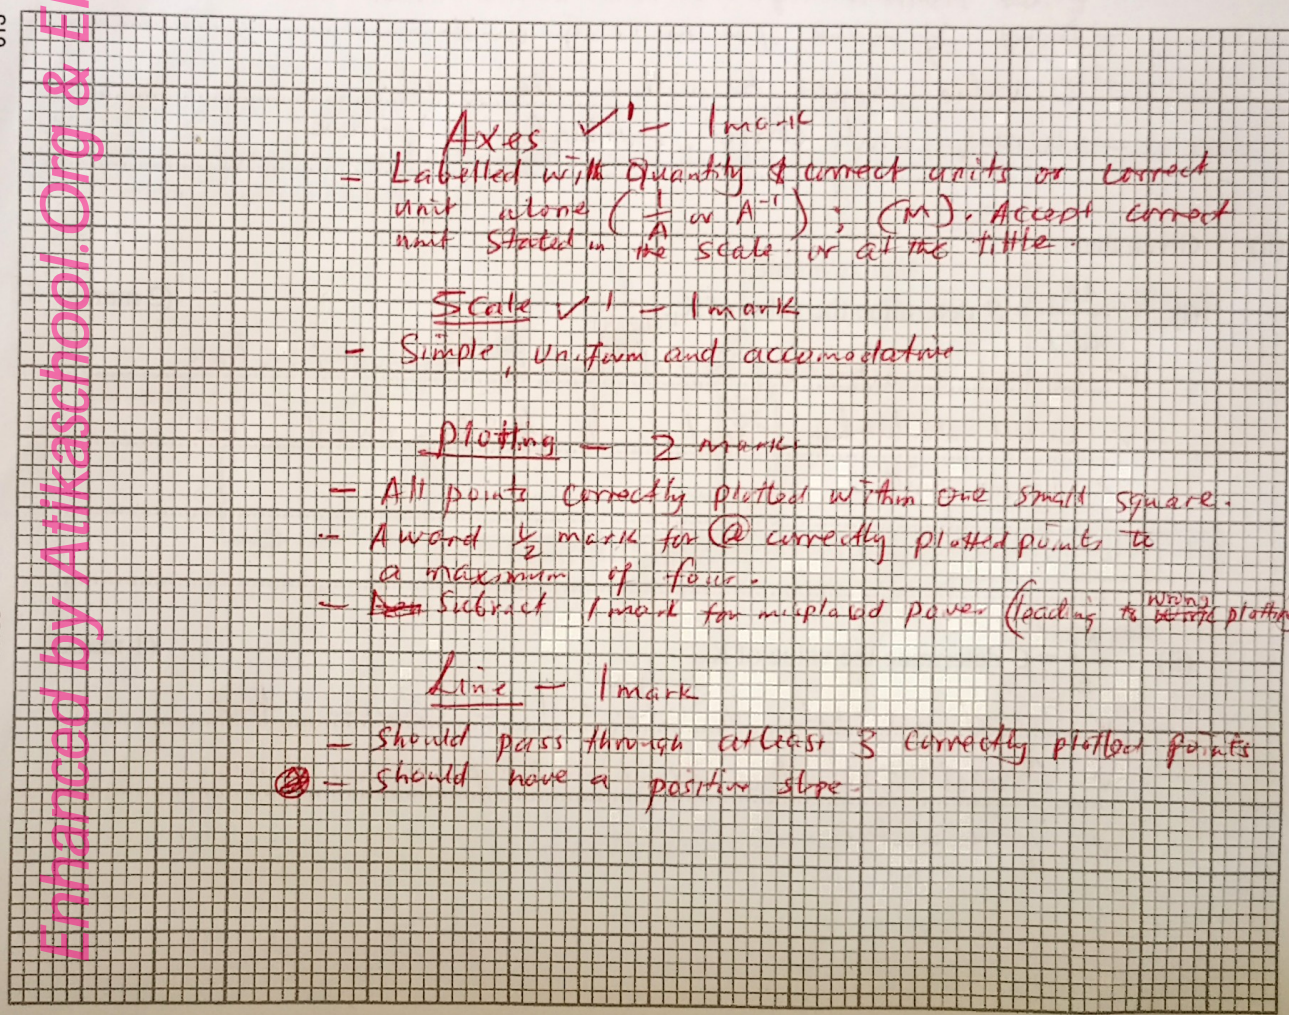 Enhanced by Atikaschool.Org & E
Axes ✓1 – 1 mark
– Labelled with Quantity & correct units or correct
unit alone (1/A or A⁻¹) ; (M). Accept correct
unit stated in the scale or at the tittle.
Scale ✓1 – 1 mark
– Simple, uniform and accomodative
Plotting – 2 marks
– All points correctly plotted within one small square.
– Award ½ mark for @ correctly plotted points to
a maximum of four.
– Subtract 1 mark for misplaced power (leading to wrong plotting
Line – 1 mark
– Should pass through atleast 3 correctly plotted points
– Should have a positive slope.